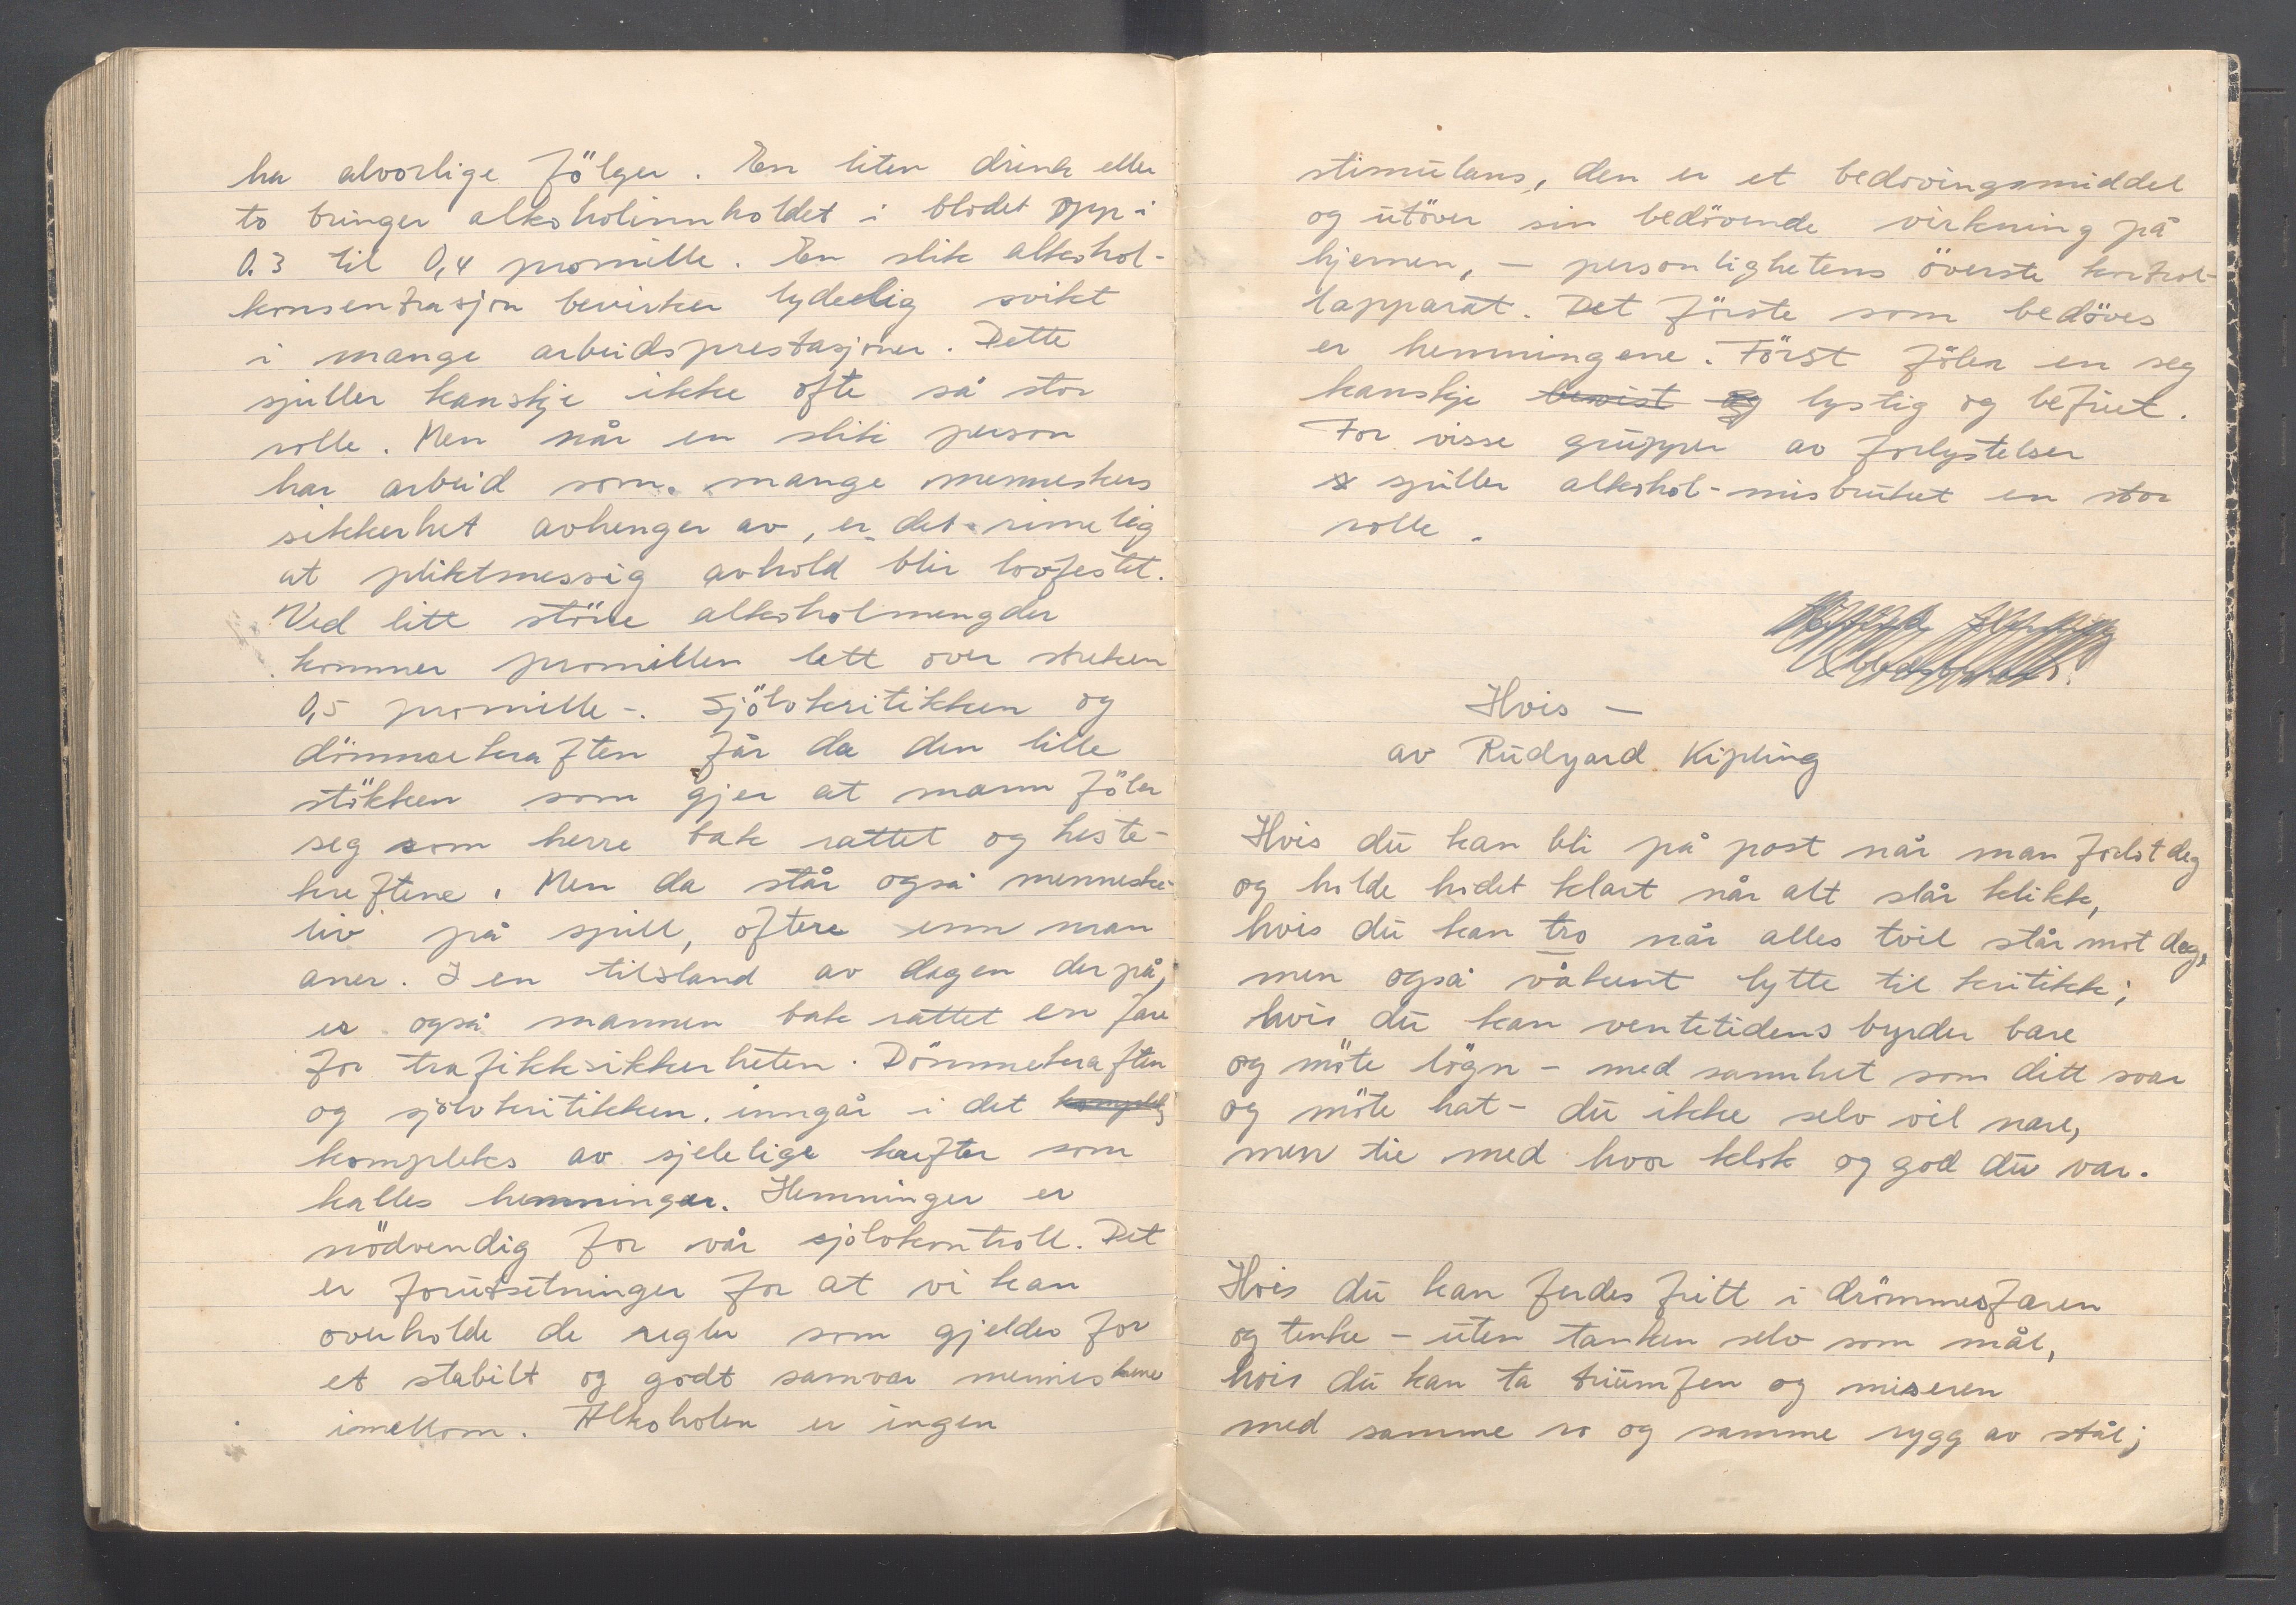 ha alvorlige fölger. En liten drink eller
to bringer alkoholinnholdet i blodet opp i
0.3 til 0,4 promille. En slik alkohol-
konsentrasjon bevirker tydelig svikt
i mange arbeidsprestasjoner. Dette
spiller kanskje ikke ofte så stor
rolle. Men når en slik person
har arbeid som mange menneskers
sikkerhet avhenger av, er det rimelig
at pliktmessig avhold blir lovfestet.
Ved litt störe alkoholmengder
kommer promillen lett over streken
0,5 promille-. Sjölvkritikken og
dömmekraften får da den lille
stökken som gjer at mann föler
seg som herre bak rattet og heste-
kreftene. Men da står også menneske-
liv på spill, oftere enn man
aner. I en tilstand av dagen derpå,
er også mannen bak rattet en fare
for trafikksikkerheten. Dömmekraften
og sjölvkritikken inngår i det
kompleks av sjelelige krefter som
kalles hemninger. Hemninger er
nödvendig for vår sjölvkontroll. Det
er forutsetninger for at vi kan
overholde de regler som gjelder for
et stabilt og godt samvær menneskene
imellom. Alkoholen er ingen
stimulans, den er et bedövingsmiddel
og utöver sin bedövende virkning på
hjernen, - personlighetens överste kontrol-
lapparat. Det förste som bedöves
er hemningene. Först föler en seg
kanskje bevist og lystig og befriet.
For visse grupper av forlystelser
spiller alkohol-misbruket en stor
rolle.
Hvis -
av Rudyard Kipling
Hvis du kan bli på post når man forlot deg
og holde hodet klart når alt slår klikk,
hvis du kan tro når alles tvil står mot deg,
men også våkent lytte til kritikk;
hvis du kan ventetidens byrder bære
og möte lögn - med sannhet som ditt svar
og möte hat - du ikke selv vil nære,
men tie med hvor klok og god du var.
Hvis du kan ferdes fritt i drömmesfæren
og tenke - uten tanken selv som mål,
hvis du kan ta triumfen og miseren
med samme ro og samme rygg av stål;